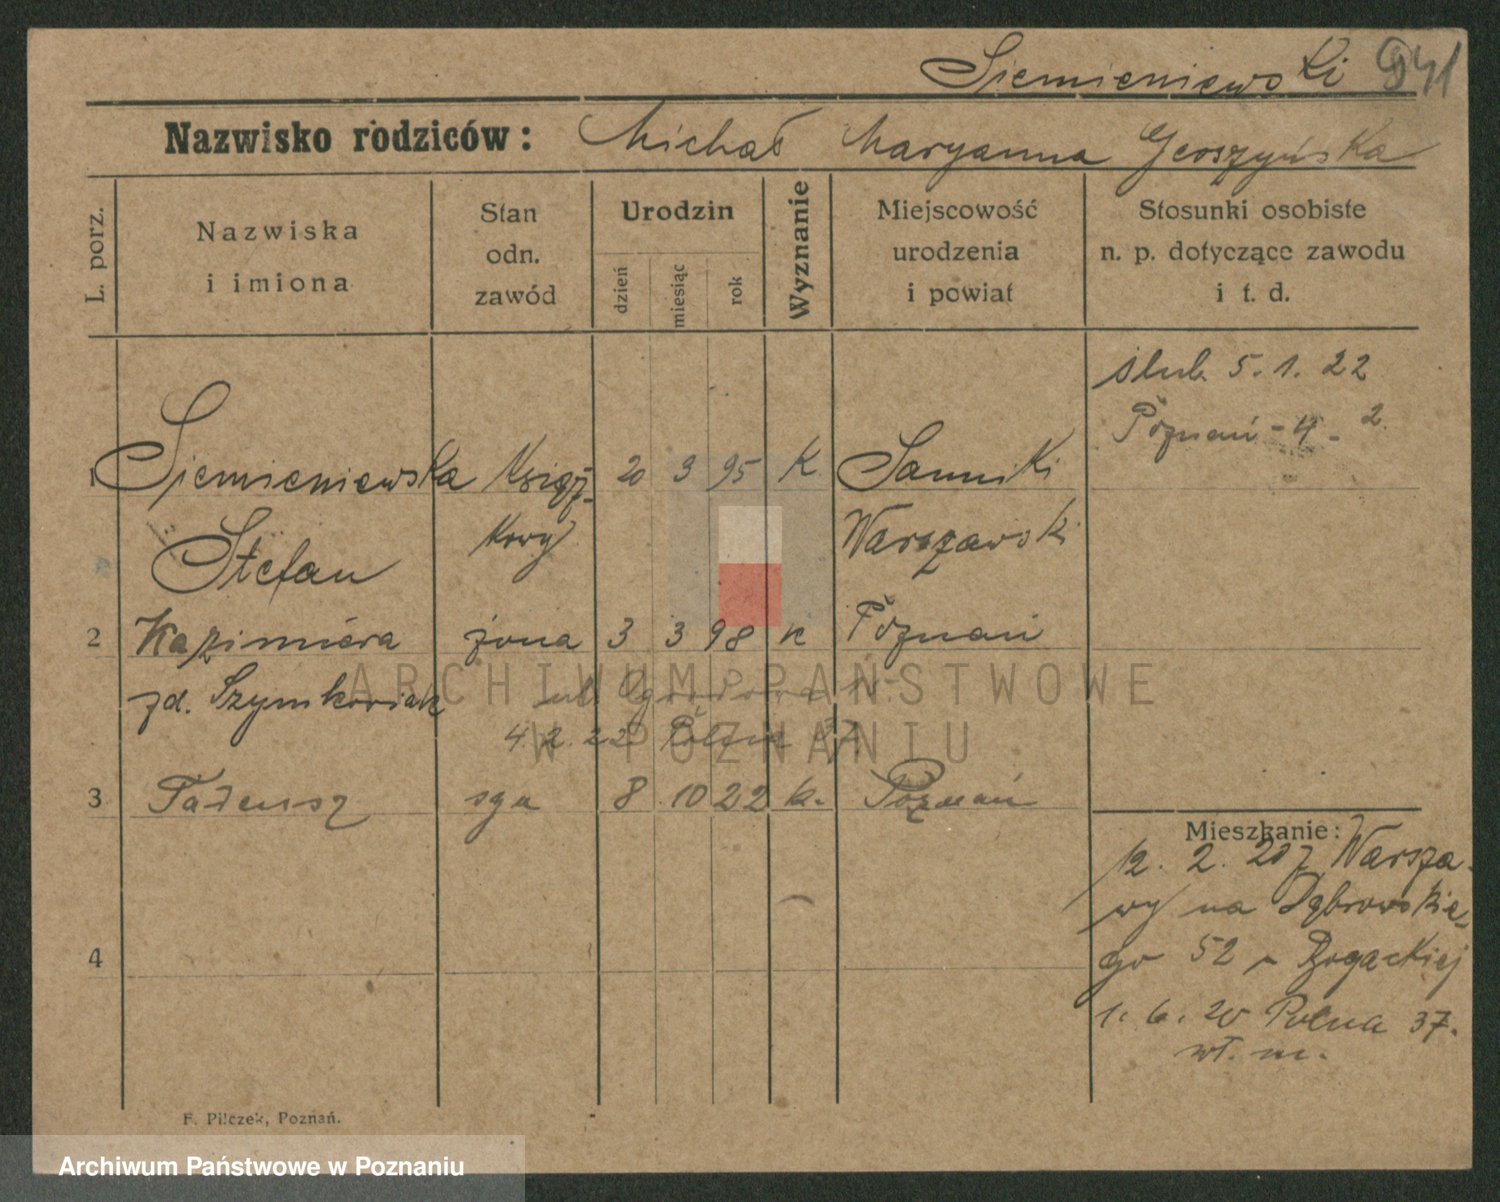 Siemieniewski
Nazwisko rodziców: Michał Maryanna Gerszyńska
L. porz.
Nazwiska i imiona
Stan odn. zawód
Urodzin
dzień
miesiąc
rok
Wyznanie
Miejscowość urodzenia i powiat
Stosunki osobiste n. p. dotyczące zawodu i t. d.
ślub. 5. 1. 22
Poznań - 4 - 2
1 Siemieniewska Księż- 20 3 95 K Sanniki
Stefan kowy Warszawski
2 Kazimiera żona 3 3 98 K Poznań
zd. Szymkowiak ul. Ogrodowa
4. 2. 22 Polna 37
3 Tadeusz syn 8 10 22 k. Poznań
Mieszkanie:
12. 2. 20 z Warsza-
wy na Dąbrowskie-
go 52 Bogackiej
1. 6. 20 Polna 37.
wł. m.
4
F. Pilczek, Poznań.
ARCHIWUM PAŃSTWOWE
W POZNANIU
Archiwum Państwowe w Poznaniu